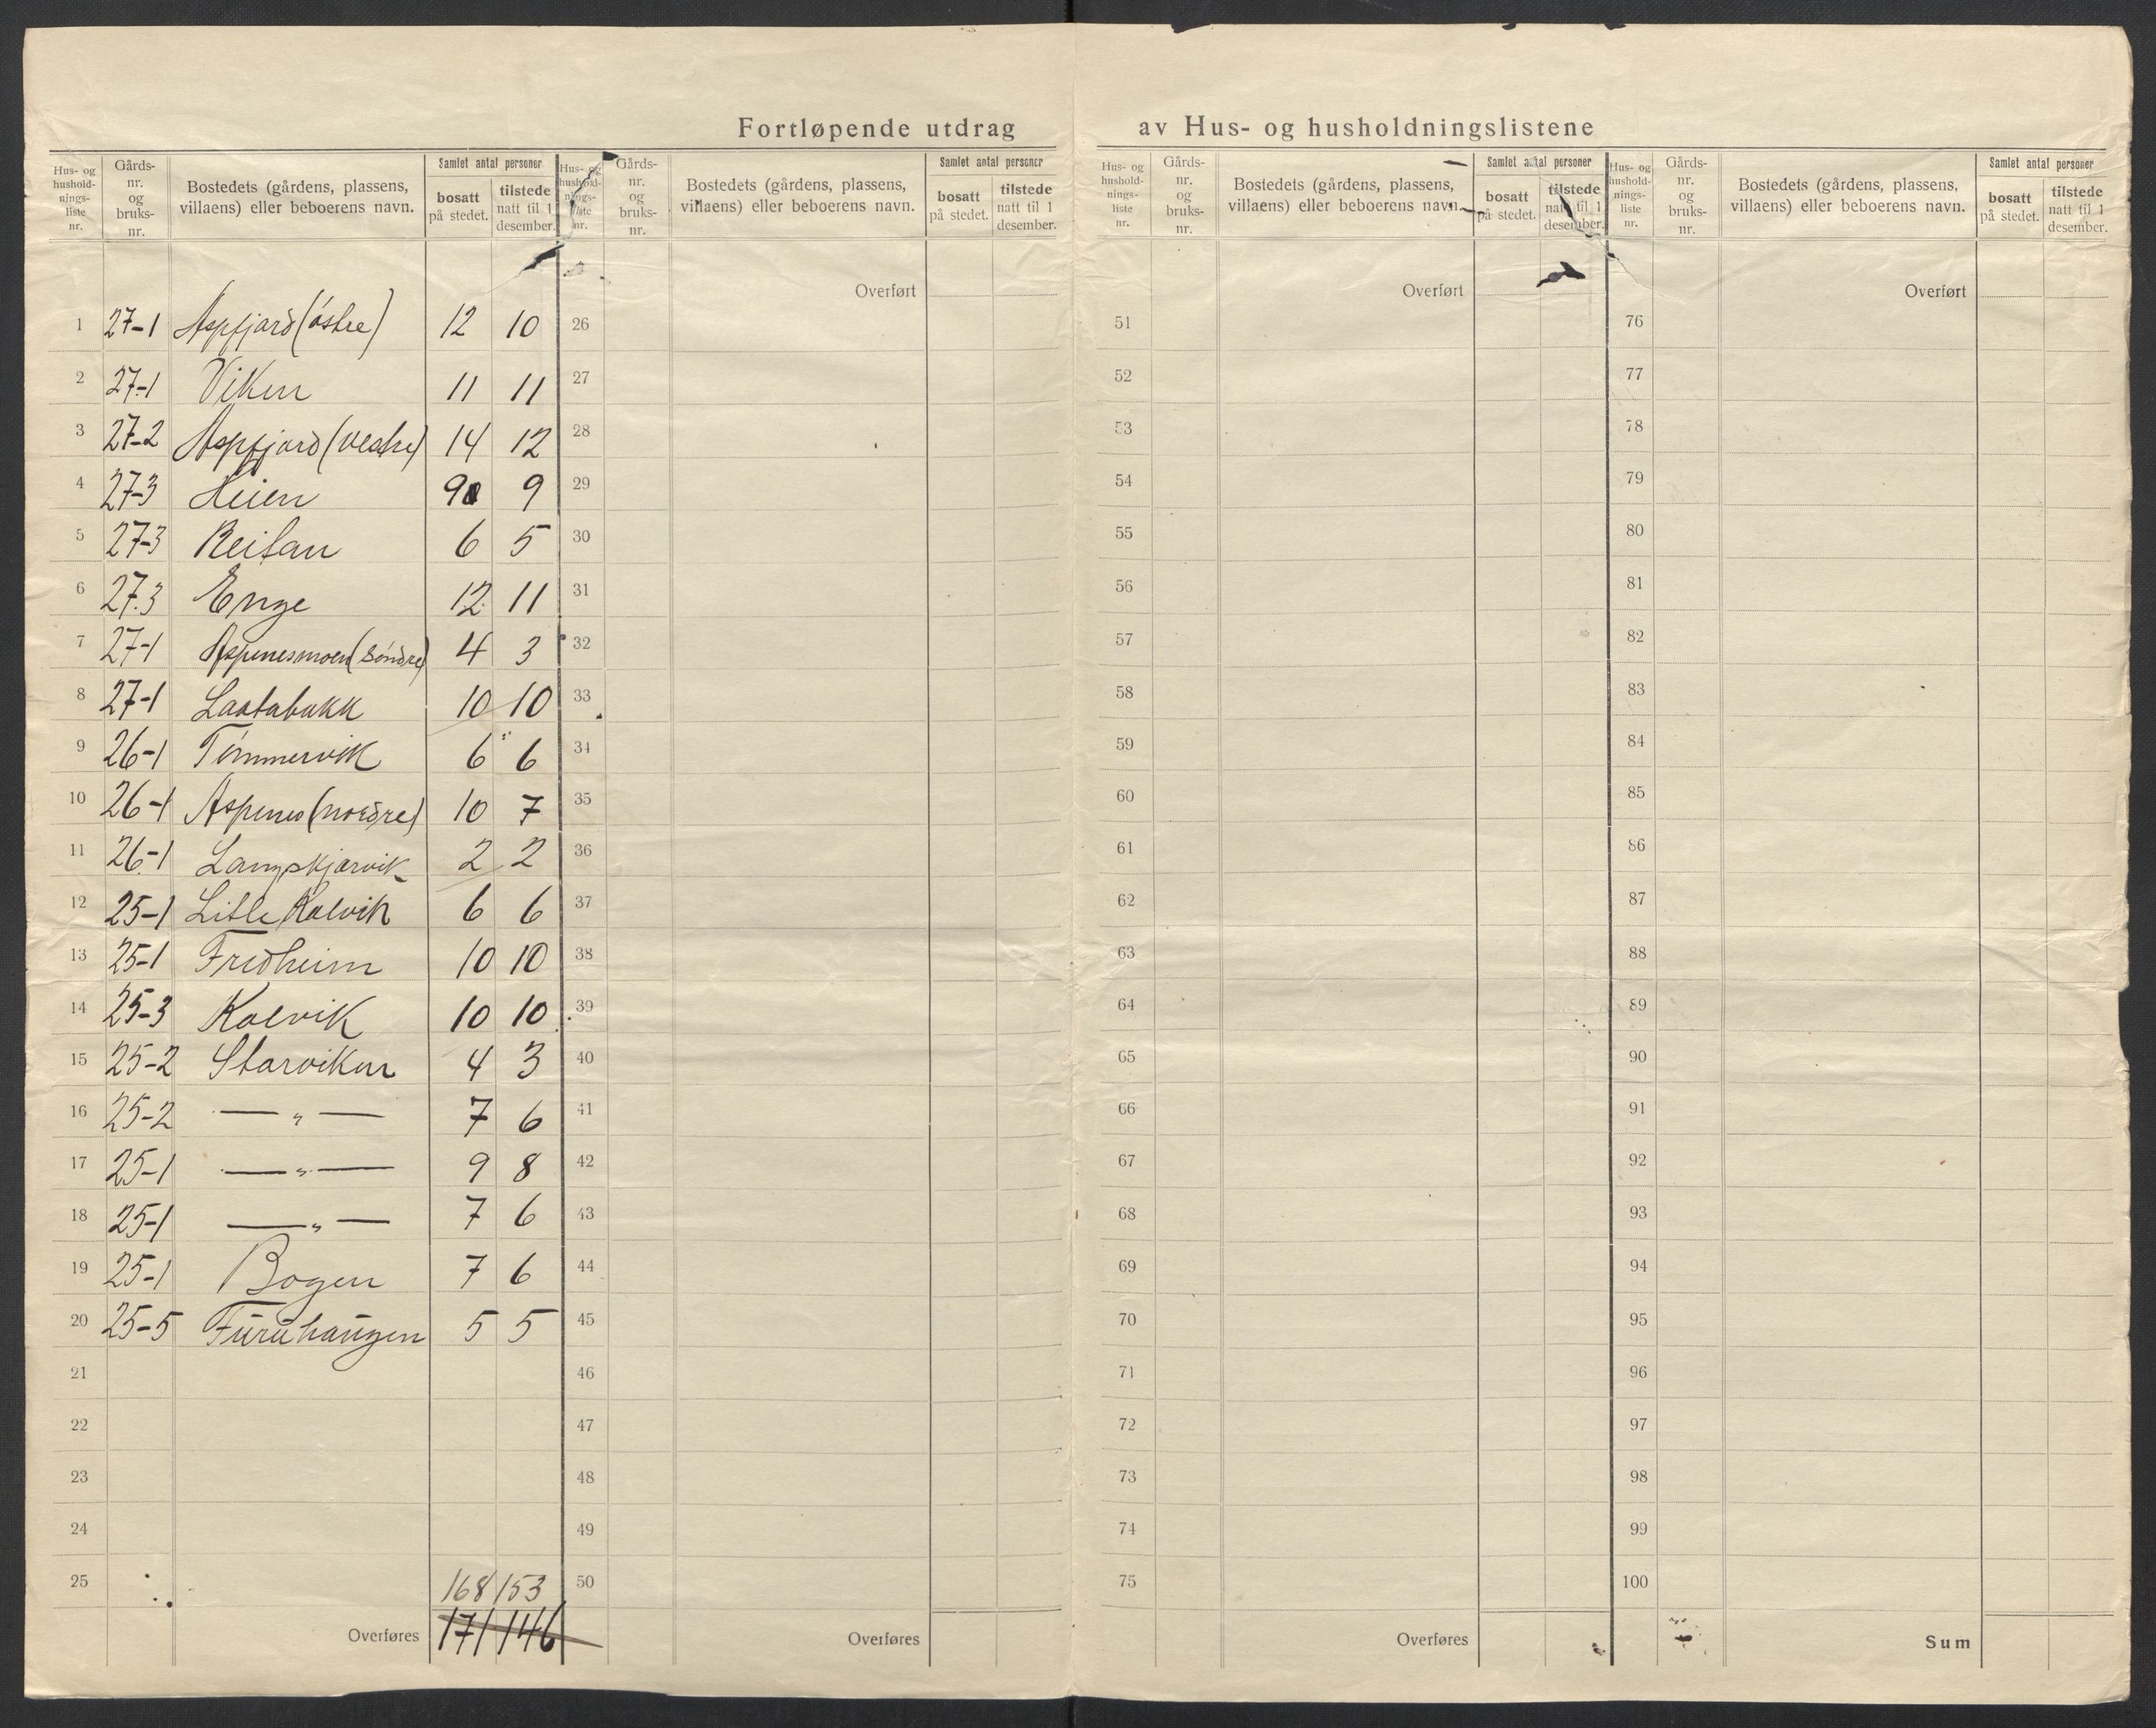 Fortløpende utdrag av Hus- og husholdningslistene
Hus- og hushold-nings-liste nr. Gårds-nr. og bruks-nr. Bostedets (gårdens, plassens, villaens) eller beboerens navn. Samlet antal personer bosatt på stedet. tilstede natt til 1 desember.
Hus- og hushold-nings-liste nr. Gårds-nr. og bruks-nr. Bostedets (gårdens, plassens, villaens) eller beboerens navn. Samlet antal personer bosatt på stedet. tilstede natt til 1 desember.
Hus- og hushold-nings-liste nr. Gårds-nr. og bruks-nr. Bostedets (gårdens, plassens, villaens) eller beboerens navn. Samlet antal personer bosatt på stedet. tilstede natt til 1 desember.
Hus- og hushold-nings-liste nr. Gårds-nr. og bruks-nr. Bostedets (gårdens, plassens, villaens) eller beboerens navn. Samlet antal personer bosatt på stedet. tilstede natt til 1 desember.
Overført Overført Overført
1 27-1 Aspfjord (östre) 12 10 26 51 76
2 27-1 Viken 11 11 27 52 77
3 27-2 Aspfjord (vestre) 14 12 28 53 78
4 27-3 Heien 9 9 29 54 79
5 27-3 Reitan 6 5 30 55 80
6 27.3 Enge 12 11 31 56 81
7 27-1 Aspenesmoen (söndre) 4 3 32 57 82
8 27-1 Laatabukk 10 10 33 58 83
9 26-1 Tömmervik 6 6 34 59 84
10 26-1 Aspenes (nordre) 10 7 35 60 85
11 26-1 Langskjærvik 2 2 36 61 86
12 25-1 Litle Kalvik 6 6 37 62 87
13 25-1 Fredheim 10 10 38 63 88
14 25-3 Kalvik 10 10 39 64 89
15 25-2 Storviken 4 3 40 65 90
16 25-2 — „ — 7 6 41 66 91
17 25-1 — „ — 9 8 42 67 92
18 25-1 — „ — 7 6 43 68 93
19 25-1 Bogen 7 6 44 69 94
20 25-5 Furuhaugen 5 5 45 70 95
21 46 71 96
22 47 72 97
23 48 73 98
24 49 74 99
25 168 153 50 75 100
Overføres 171 146 Overføres Overføres Sum